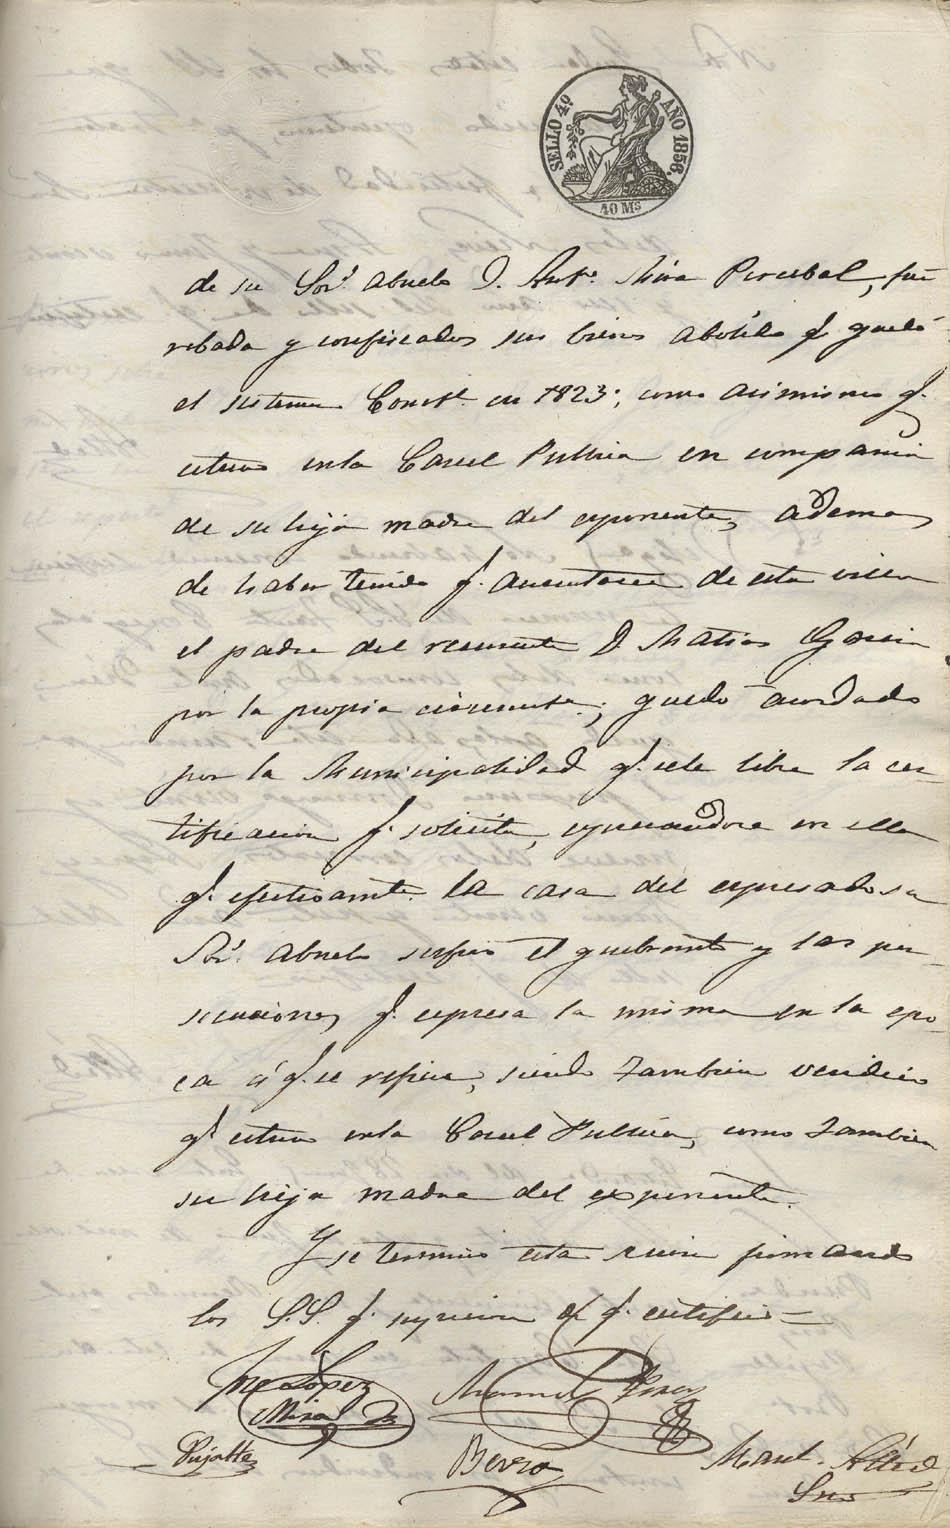 SELLO 4º AÑO 1856.
40 Ms
de su Sor. Abuelo D. Anto. Mira Percebal, fue
robada y confiscados sus bienes abolido q. quedó
el sistema Constl. en 1823; como asimismo q.
estuvo enla Carcel Publica en compañia
de su hija madre del esponente, ademas
de haber tenido q. ausentarse de esta villa
el padre del recurrente D. Matias Garcia
por la propia circunsta.; quedó acordado
por la Municipalidad q. sele libre la cer-
tificacion q. solicita, espresandose en ella
q. efectivamte. la casa del espresado su
Sor. Abuelo sufrió el quebranto y las per-
secuciones q. espresa la misma en la epo-
ca á q. se refiere, siendo tambien veridico
q. estuvo enla Carcel Publica, como tambien
su hija madre del exponente.
Y se terminó esta sesion firmando
los S.S. q. supieron de q. certifico=
Je. Lopez Manuel Perez
Mira
Pujalte Berro Manl. Alted
Srio